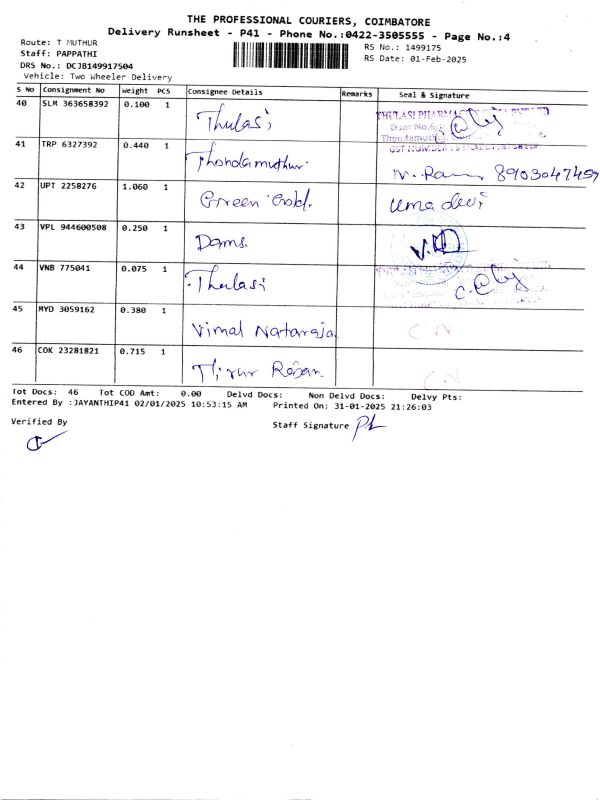 THE PROFESSIONAL COURIERS, COIMBATORE
Delivery Runsheet - P41 - Phone No.:0422-3505555 - Page No.:4
Route: T MUTHUR
RS No.: 1499175
Staff: PAPPATHI
RS Date: 01-Feb-2025
DRS No.: DCJB149917504
Vehicle: Two Wheeler Delivery
S No Consignment No Weight PCS Consignee Details Remarks Seal & Signature
40 SLM 363658392 0.100 1 Thulasi
41 TRP 6327392 0.440 1 Thondamuthur 8903047459
42 UPT 2258276 1.060 1 Green Gold. uma devi
43 VPL 944600508 0.250 1 Dams.
44 VNB 775041 0.075 1 Thulasi
45 MYD 3059162 0.380 1 Vimal Nataraja CN
46 COK 23281821 0.715 1 CN
Tot Docs: 46 Tot COD Amt: 0.00 Delvd Docs: Non Delvd Docs: Delvy Pts:
Entered By :JAYANTHIP41 02/01/2025 10:53:15 AM Printed On: 31-01-2025 21:26:03
Verified By
Staff Signature